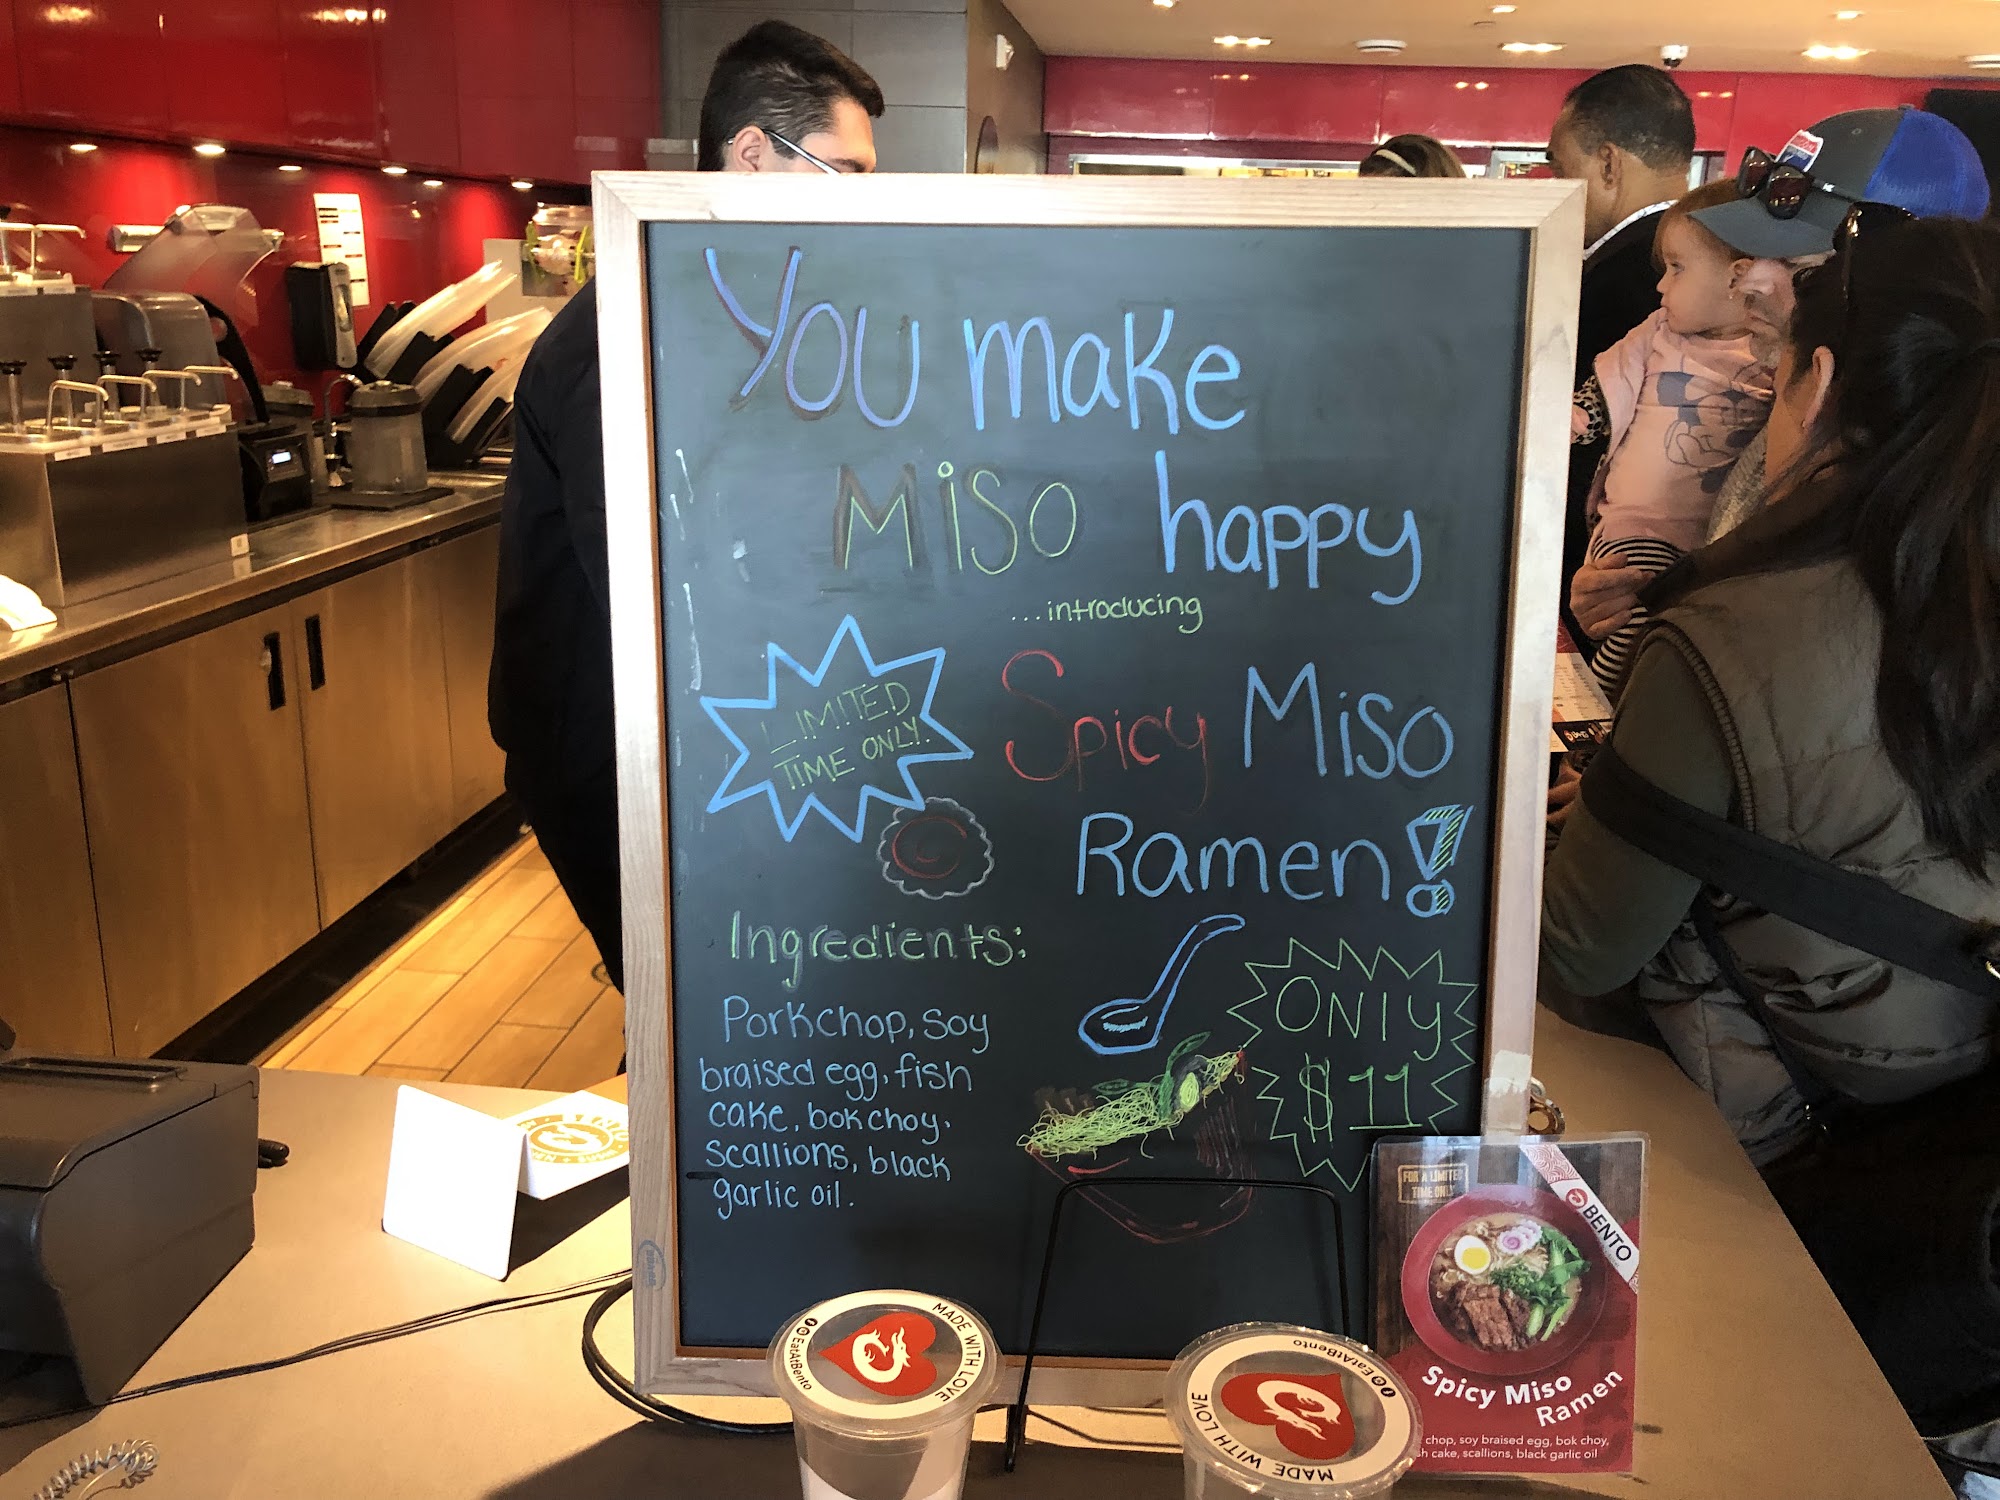 You make
Miso happy
...introducing
LIMITED
TIME ONLY.
Spicy Miso
Ramen!
Ingredients:
Porkchop, soy
braised egg, fish
cake, bok choy,
scallions, black
garlic oil.
ONLY
$11
FOR A LIMITED
TIME ONLY
BENTO
Spicy Miso
Ramen
chop, soy braised egg, bok choy,
cake, scallions, black garlic oil
MADE WITH LOVE
EatAtBento
MADE WITH LOVE
EatAtBento